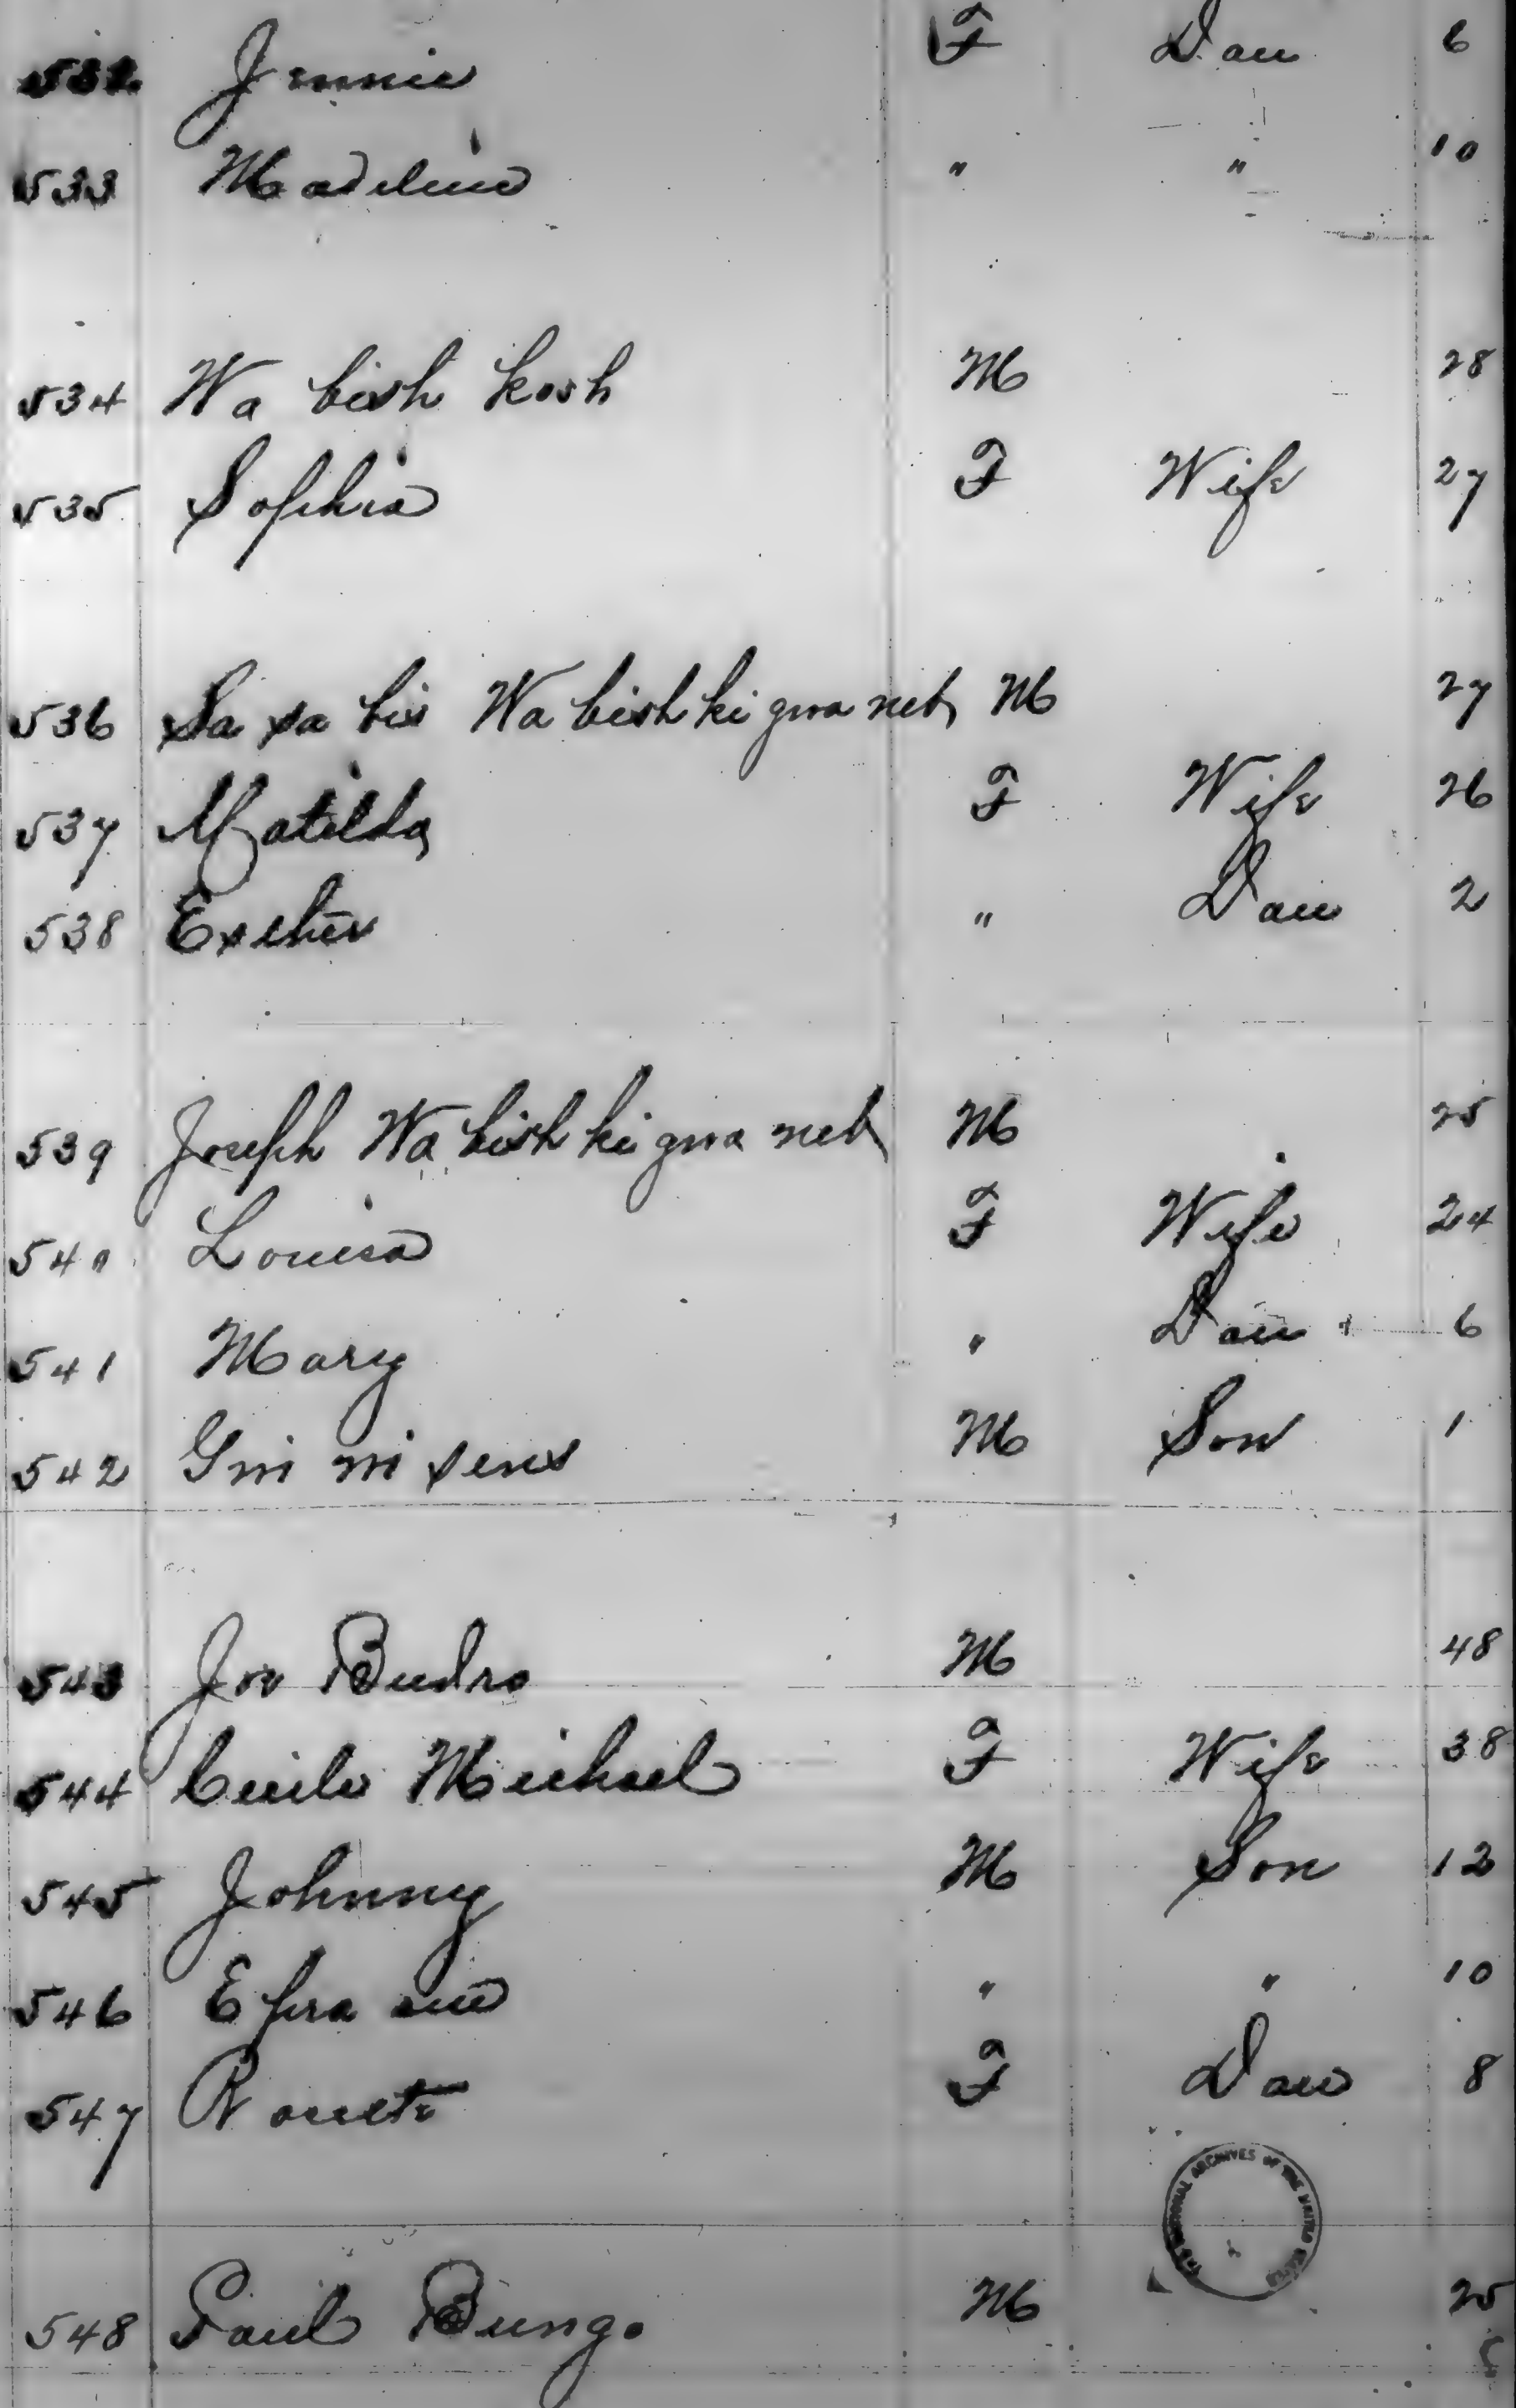 532 Jennie F Dau 6
533 Madeline " " 10
534 Wa bish kosh M 28
535 Sophia F Wife 27
536 Sa sa bis Wa bish ki gwa neb M 27
537 Matilda F Wife 26
538 Esther " Dau 2
539 Joseph Wa bish ki gwa neb M 25
540 Louisa F Wife 24
541 Mary " Dau 6
542 Gwi wi sens M Son 1
543 Joe Budro M 48
544 Cecile Michael F Wife 38
545 Johnny M Son 12
546 " " 10
547 F Dau 8
THE NATIONAL ARCHIVES OF THE UNITED STATES
548 Paul Bungo M 25